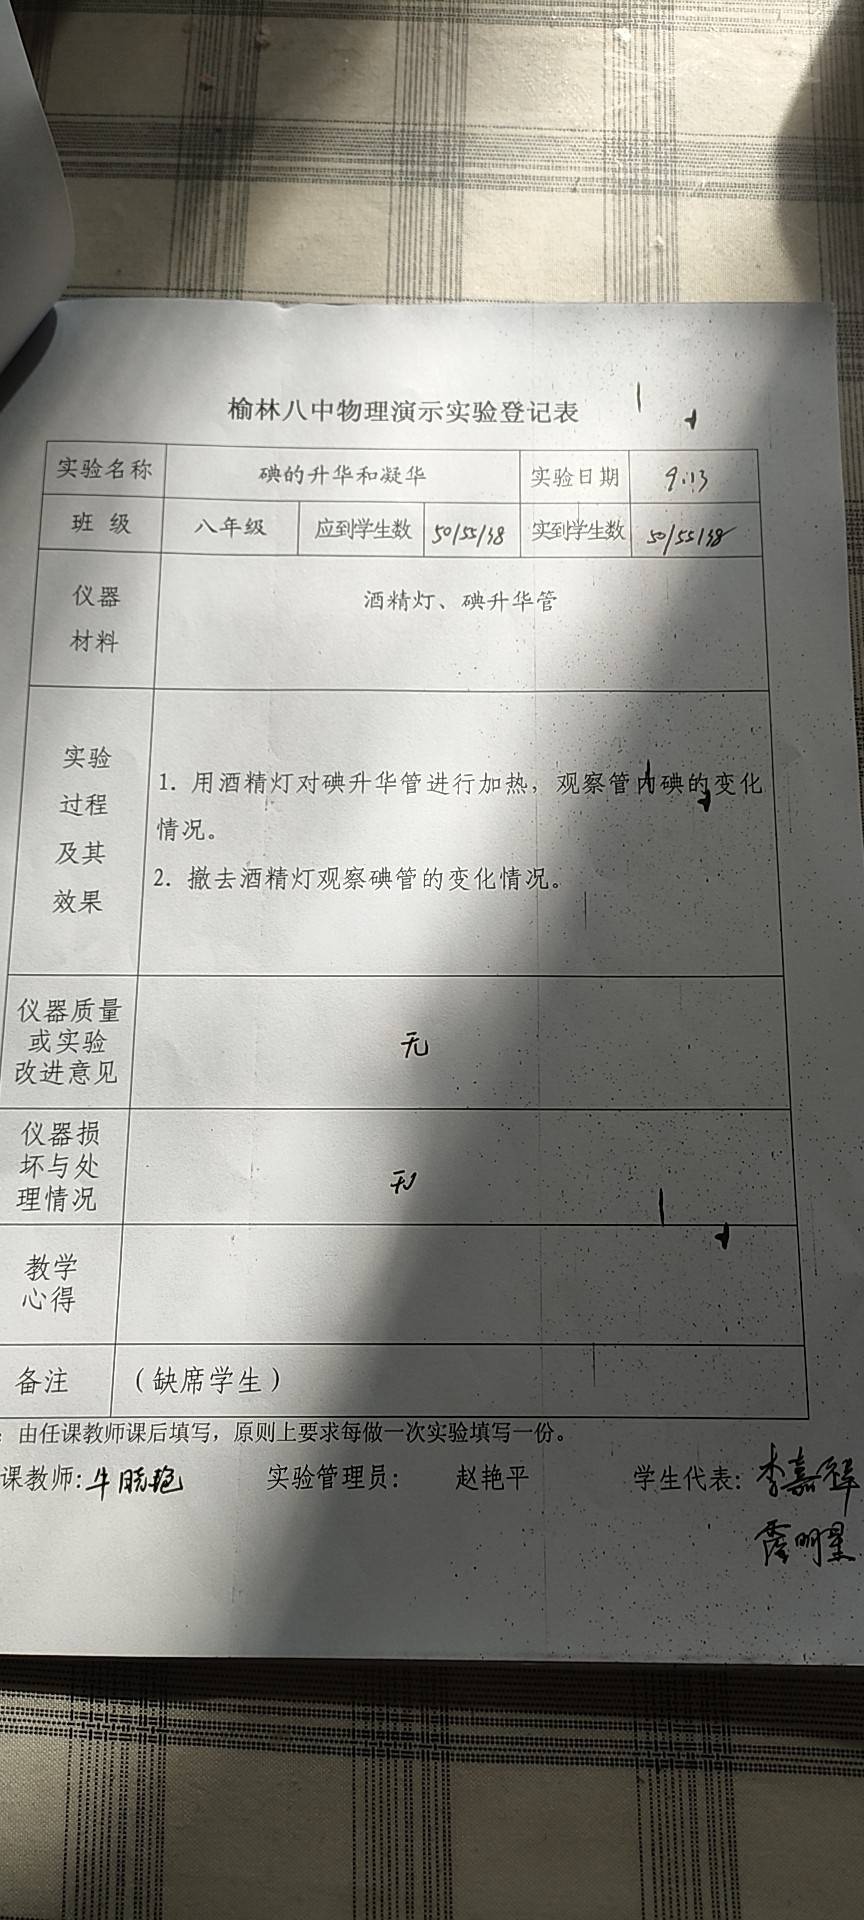 榆林八中物理演示实验登记表
实验名称 碘的升华和凝华 实验日期 9.13
班 级 八年级 应到学生数 50/55/48 实到学生数 50/55/48
仪器
材料
酒精灯、碘升华管
实验
过程
及其
效果
1. 用酒精灯对碘升华管进行加热，观察管内碘的变化
情况。
2. 撤去酒精灯观察碘管的变化情况。
仪器质量
或实验
改进意见
无
仪器损
坏与处
理情况
无
教学
心得
备注 （缺席学生）
：由任课教师课后填写，原则上要求每做一次实验填写一份。
课教师: 牛晓艳 实验管理员： 赵艳平 学生代表: 李嘉祥
明星